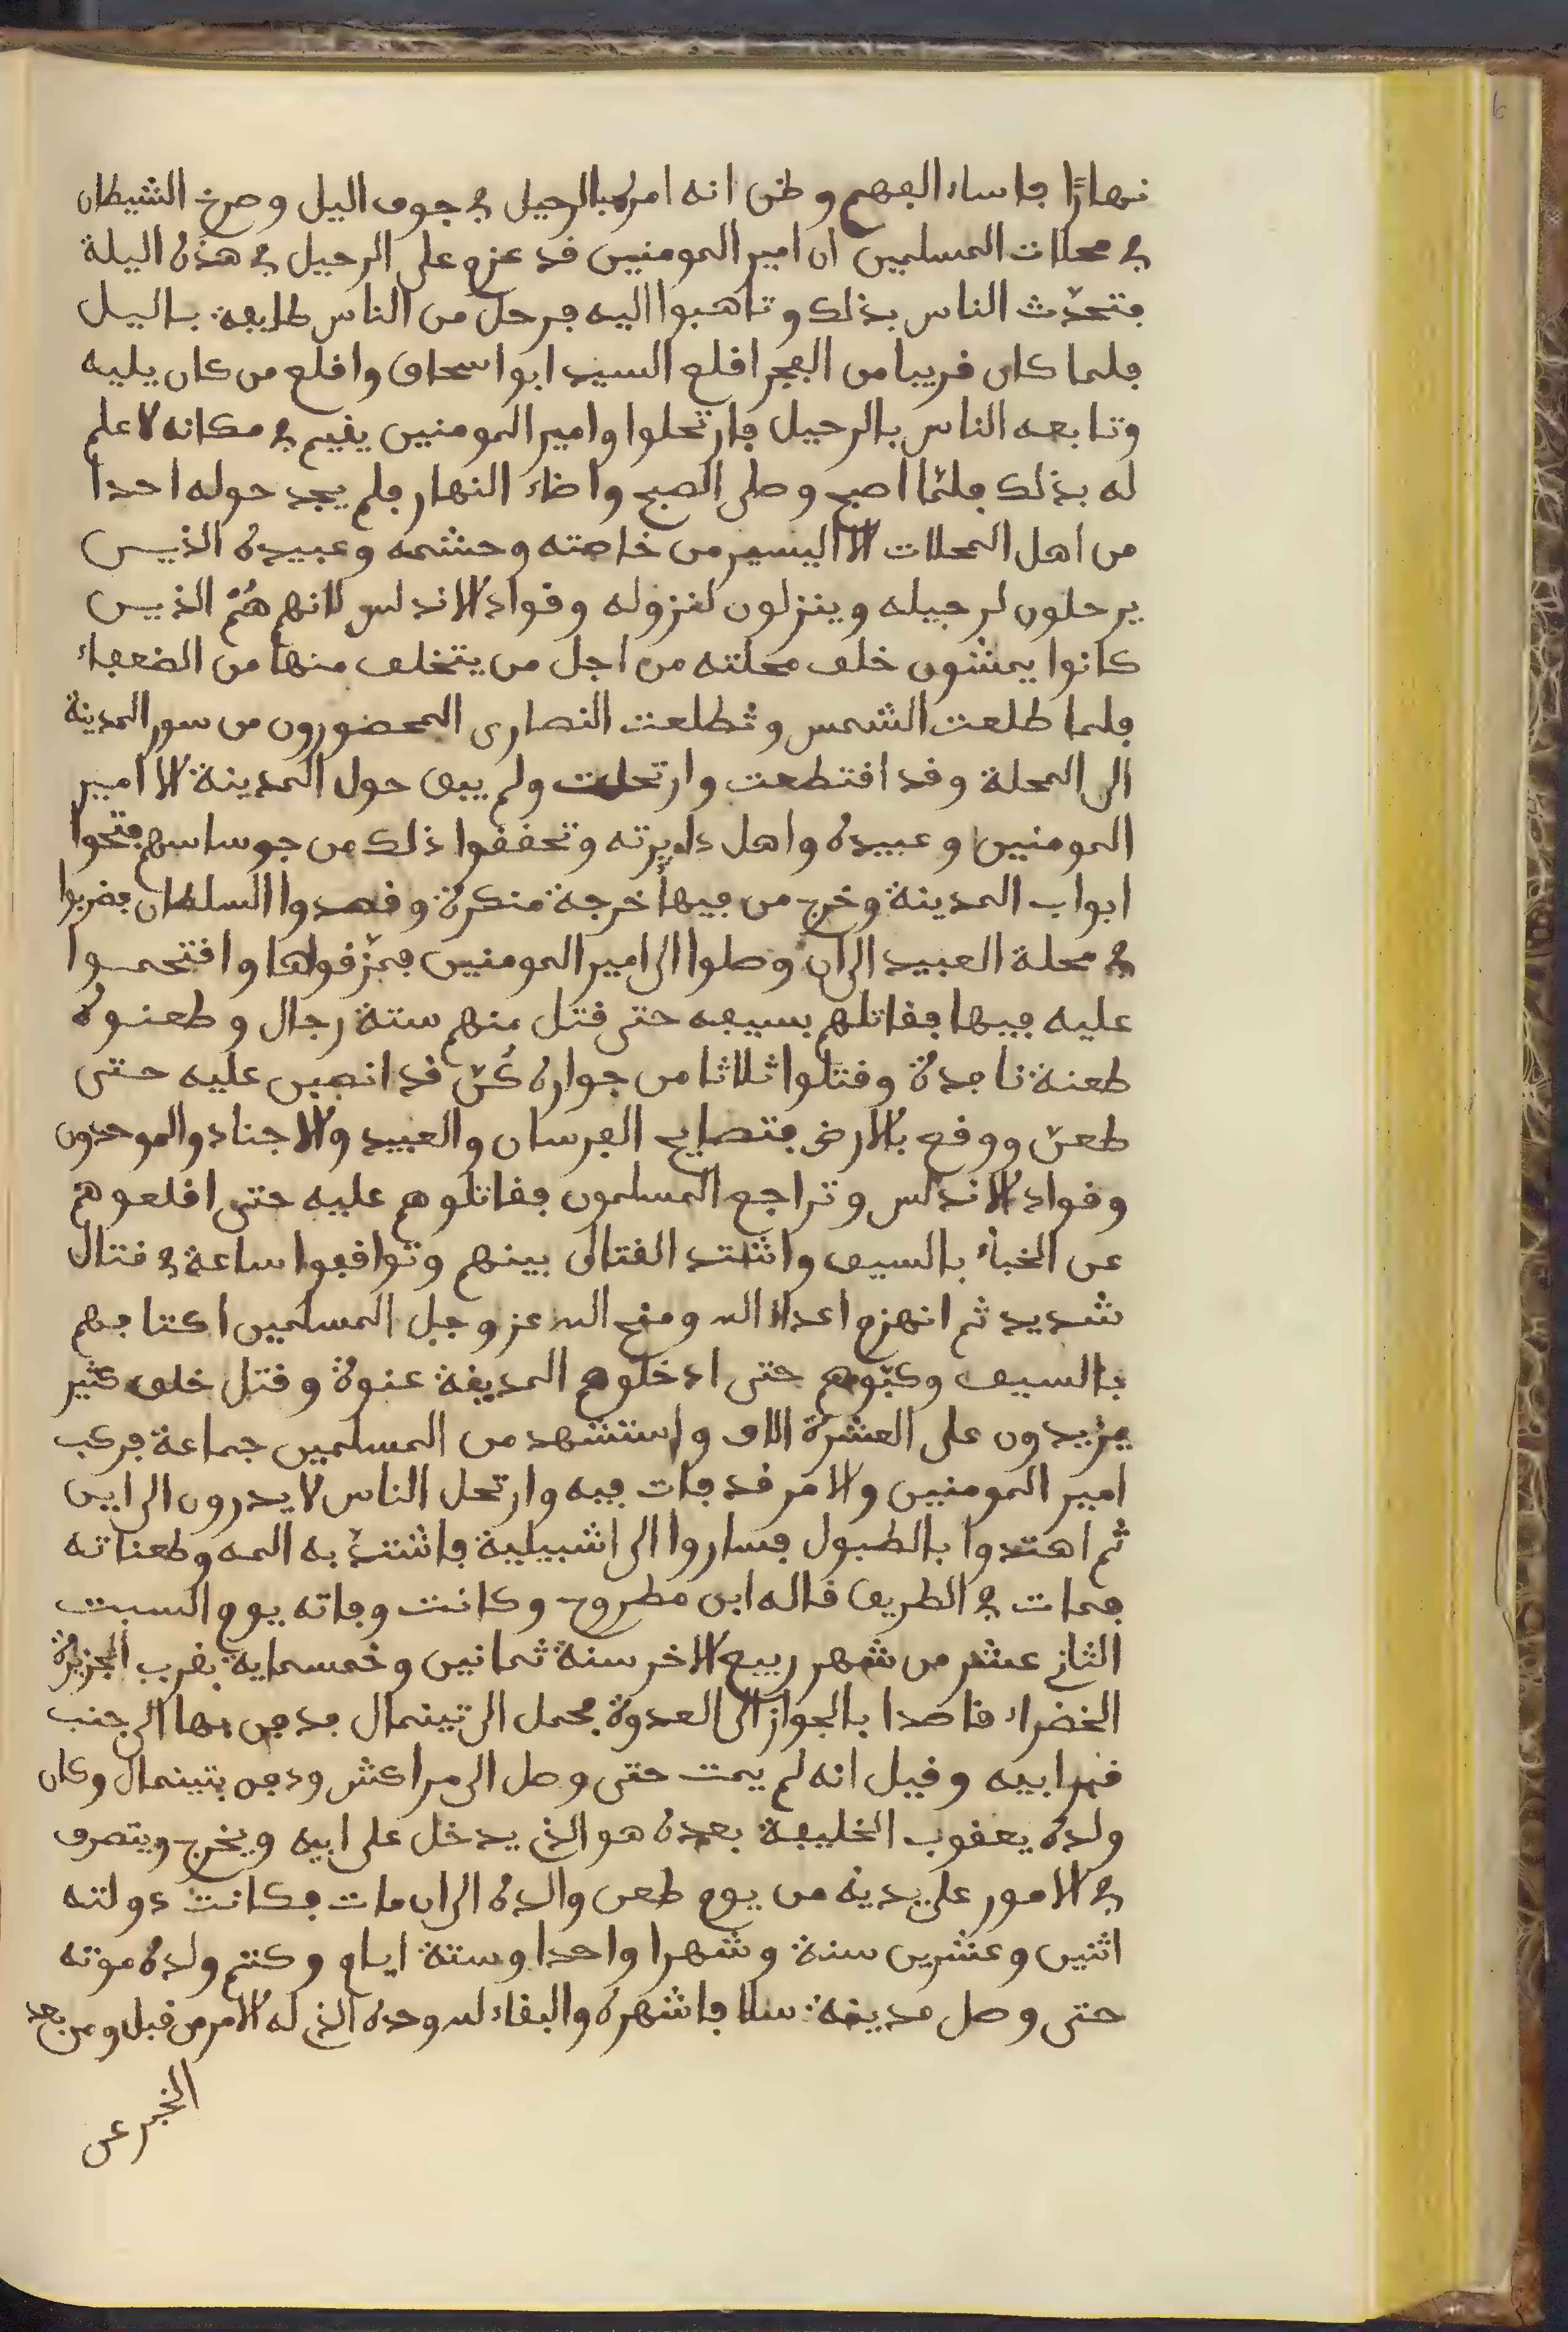 نهارًا فاساء الفهم وظن انه امره بالرحيل في جوف اليل وصرخ الشيطان
في محلات المسلمين ان امير المومنين قد عزم على الرحيل في هذه اليلة
فتحدّث الناس بذلك وتاهبوا اليه فرحل من الناس طايفة باليل
فلما كان قريبا من الفجر اقلع السيد ابو اسحاق واقلع من كان يليه
وتابعه الناس بالرحيل فارتحلوا وامير المومنين يقيم في مكانه لا علم
له بذلك فلمّا اصبح وصلى الصبح واضاء النهار فلم يجد حوله احدا
من اهل المحلات الا اليسير من خاصته وحشمه وعبيده الذيـن
يرحلون لرحيله وينزلون لنزوله وقواد الاندلس لانهم هُمْ الذيـن
كانوا يمشون خلف محلته من اجل من يتخلف منها من الضعفاء
فلما طلعت الشمس وتطلعت النصارى المحضورون من سور المدينة
الى المحلة وقد اقتطعت وارتحلت ولم يبق حول المدينة الا امير
المومنين وعبيده واهل دايرته وتحققوا ذلك من جوساسهم فتحوا
ابواب المدينة وخرج من فيها خرجة منكرة وقصدوا السلطان فضربوا
في محلة العبيد الى ان وصلوا الى امير المومنين فمزّقوها واقتحمـوا
عليه فيها فقاتلهم بسيفه حتى قتل منهم ستة رجال وطعنـوه
طعنة نافذة وقتلوا ثلاثا من جواره كُنّ قد انصبن عليه حـتى
طعن ووقع بالارض فتصايح الفرسان والعبيد والاجناد والموحدون
وقواد الاندلس وتراجع المسلمون فقاتلوهم عليه حتى اقلعوهم
عن الخباء بالسيف واشتد القتال بينهم وتواقفوا ساعة في قتال
شديد ثم انهزم اعداء الله ومنح الله عز وجل المسلمين اكتافهم
بالسيف وكبّوهم حتى ادخلوهم المدينة عنوة وقتل خلق كثير
يزيدون على العشرة الاف واستشهد من المسلمين جماعة فركب
امير المومنين والامر قد فات فيه وارتحل الناس لا يدرون الى اين
ثم اهتدوا بالطبول فساروا الى اشبيلية فاشتدّ به المه وطعناته
فمات في الطريق قاله ابن مطروح وكانت وفاته يوم السبت
الثاني عشر من شهر ربيع الاخر سنة ثمانين وخمسماية بقرب الجزيرة
الخضراء قاصدا بالجواز الى العدوة فحمل الى تينمال فدفن بها الى جنب
قبر ابيه وقيل انه لم يمت حتى وصل الى مراكش ودفن بتينمال وكان
ولده يعقوب الخليفة بعده هو الذي يدخل على ابيه ويخرج ويتصرف
في الامور على يديه من يوم طعن والده الى ان مات فكانت دولته
اثنين وعشرين سنة وشهرا واحدا وستة ايام وكتم ولده موته
حتى وصل مدينة سلا فاشهره والبقاء لله وحده الذي له الامر من قبل ومن بعد
الخبر عن